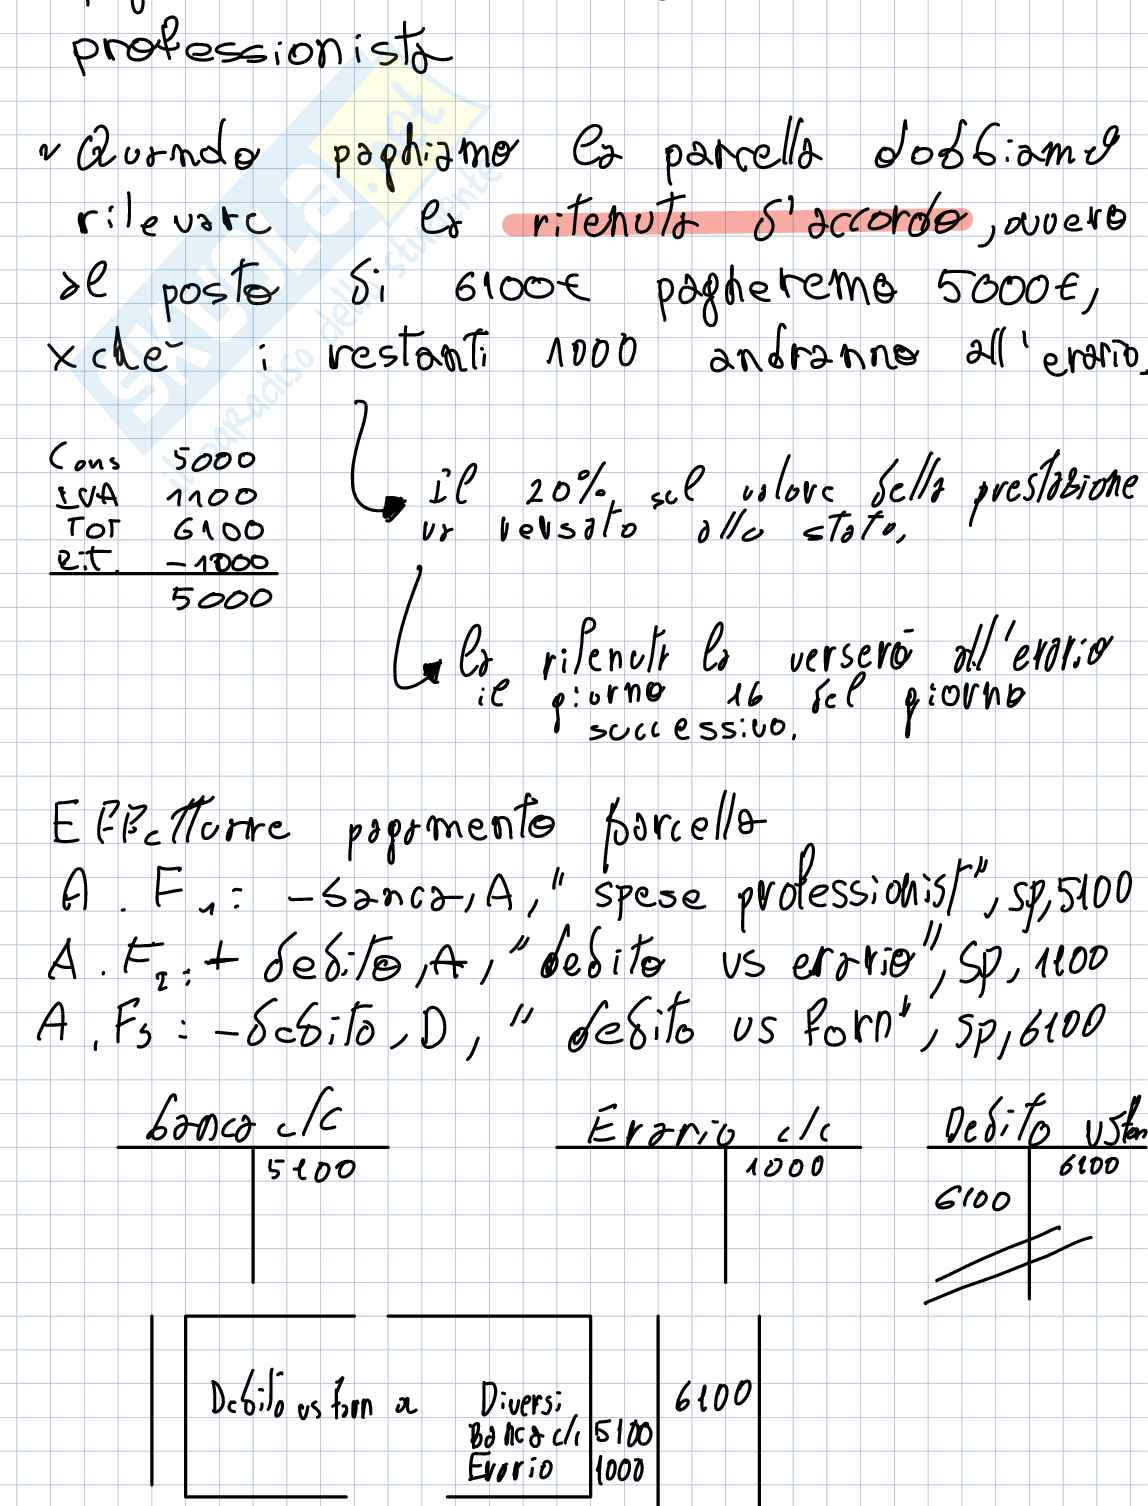 professionista
Quando paghiamo la parcella dobbiamo
rilevare la ritenuta d'accordo, ovvero
al posto di 6100€ pagheremo 5000€,
xchè i restanti 1000 andranno all'erario.
Cons 5000
IVA 1100
TOT 6100
Rit. -1000
5000
Il 20% sul valore della prestazione
va versato allo stato.
la ritenuta la verserò all'erario
il giorno 16 del giorno
successivo.
Effettuare pagamento parcella
A.F1: -banca, A, "spese professionist", sp, 5100
A.F2: + debito, A, "debito vs erario", sp, 1100
A.F3: -debito, D, "debito vs forn", sp, 6100
banca c/c Erario c/c Debito vs forn
5100 1000 6100
6100
Debito vs forn a Diversi 6100
Banca c/c 5100
Erario 1000
SKUOLA.net
il paradiso dello studente